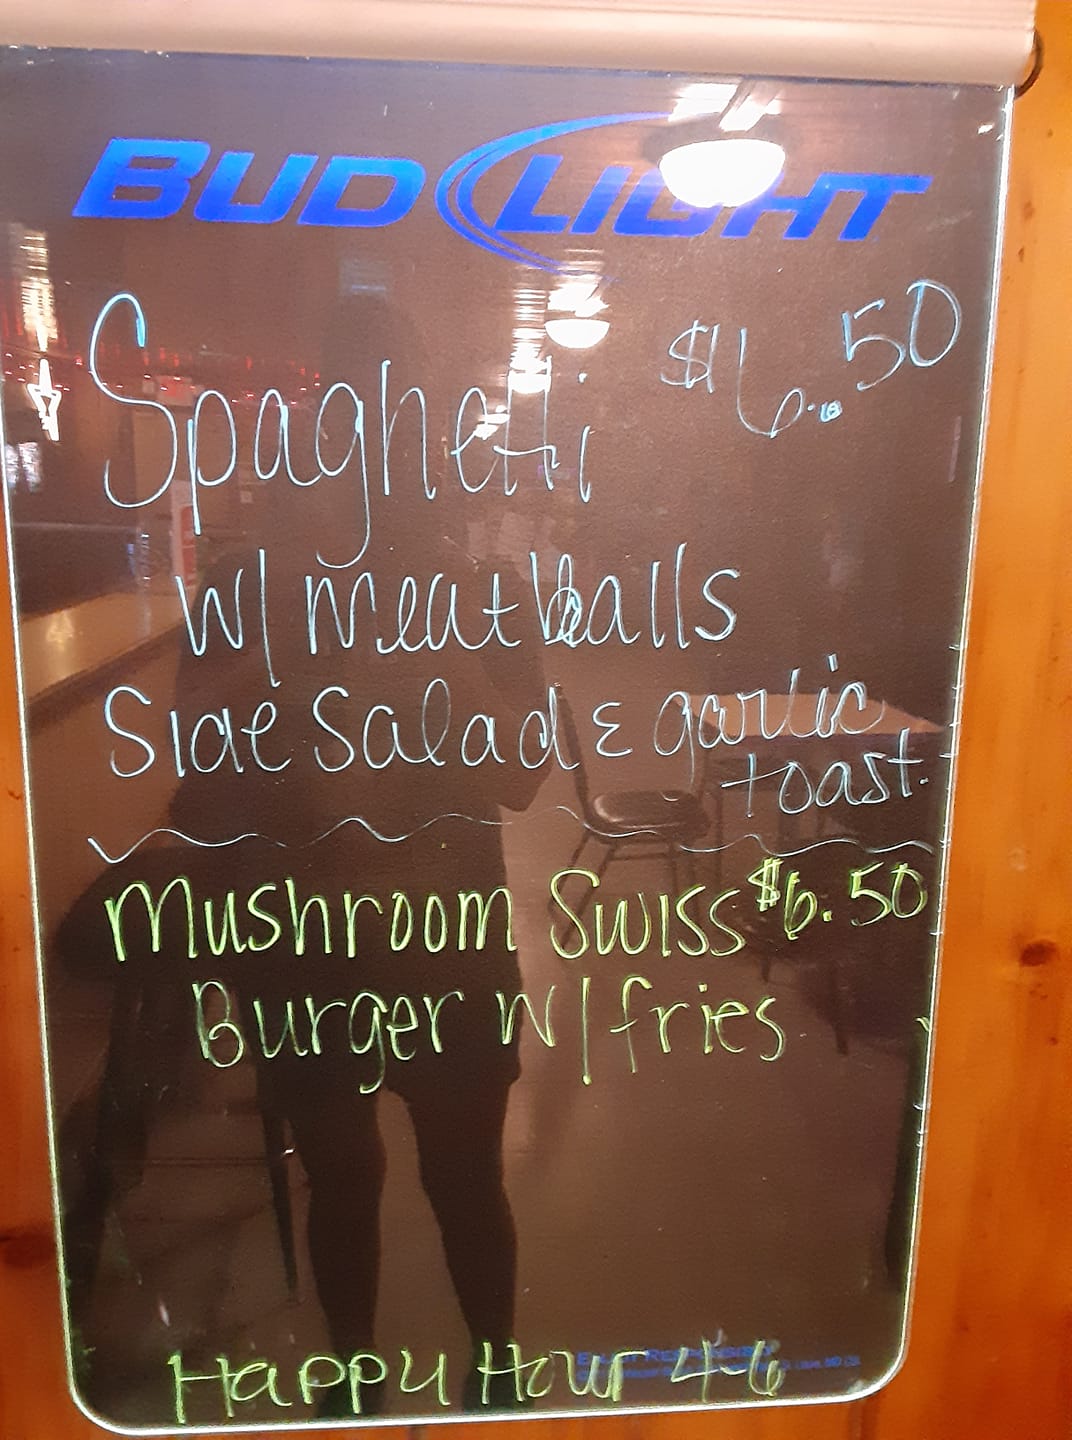 BUD LIGHT
Spaghetti $6.50
w/ meatballs
Side Salad & garlic
toast.
Mushroom Swiss $6.50
Burger w/ fries
Happy Hour 4-6